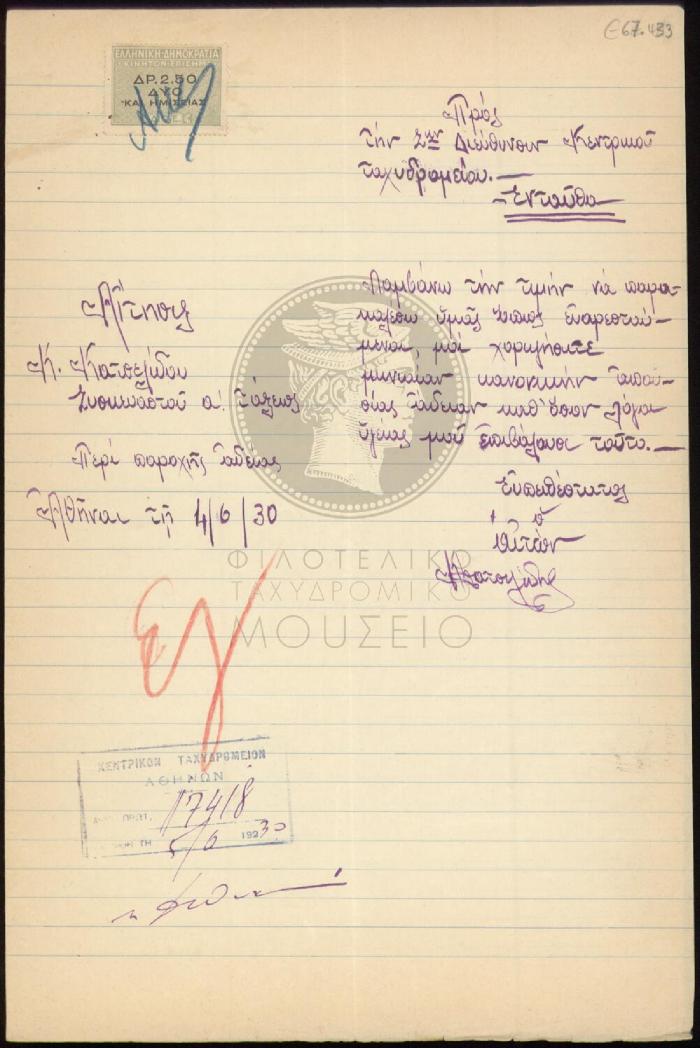 Є67.433
ΕΛΛΗΝΙΚΗ ΔΗΜΟΚΡΑΤΙΑ
ΚΙΝΗΤΟΝ ΕΠΙΣΗΜΑ
ΔΡ.2.50
ΔΥΟ
ΚΑΙ ΗΜΙΣΕΙΑΣ
Πρός
τήν Σην Διεύθυνσιν Κεντρικοῦ
ταχυδρομείου.—
Ἐνταῦθα
Αἴτησις
Κ. Κατσελίδου
Συσκευαστοῦ α. τάξεως
Περί παροχῆς ἀδείας
Ἀθῆναι τῇ 4/6/30
Λαμβάνω τήν τιμήν νά παρα-
καλέσω ὑμᾶς ὅπως εὐαρεστού-
μενοι μοί χορηγήσητε
μηνιαίαν κανονικήν ἀπου-
σίας ἄδειαν καθ' ὅσον λόγοι
ὑγείας μοῦ ἐπιβάλουσι τοῦτο.—
Εὐπειθέστατος
ὁ
Αἰτῶν
ΦΙΛΟΤΕΛΙΚΟ
ΤΑΧΥΔΡΟΜΙΚΟ
ΜΟΥΣΕΙΟ
ΚΕΝΤΡΙΚΟΝ ΤΑΧΥΔΡΟΜΕΙΟΝ
ΑΘΗΝΩΝ
ΠΡΩΤ. 17418
ΤΗ 5/6 1930